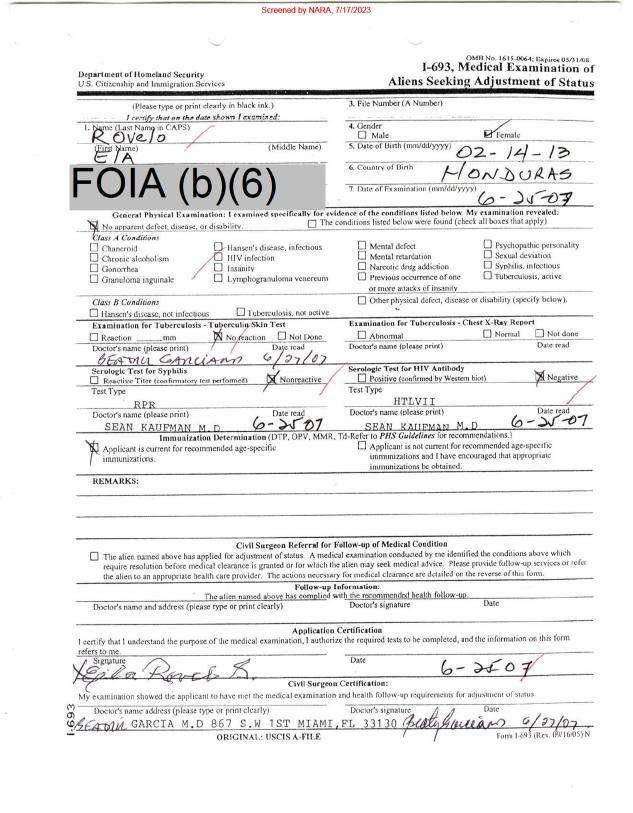 Screened by NARA, 7/17/2023
OMB No. 1615-0064; Expires 05/31/08
Department of Homeland Security
U.S. Citizenship and Immigration Services
I-693, Medical Examination of
Aliens Seeking Adjustment of Status
(Please type or print clearly in black ink.)
I certify that on the date shown I examined:
3. File Number (A Number)
1. Name (Last Name in CAPS)
Rovelo
4. Gender
Male
Female
(First Name) (Middle Name)
5. Date of Birth (mm/dd/yyyy) 02-14-13
FOIA (b)(6)
6. Country of Birth HONDURAS
7. Date of Examination (mm/dd/yyyy) 6-25-07
General Physical Examination: I examined specifically for evidence of the conditions listed below. My examination revealed:
No apparent defect, disease, or disability. The conditions listed below were found (check all boxes that apply)
Class A Conditions
Chancroid
Chronic alcoholism
Gonorrhea
Granuloma inguinale
Hansen's disease, infectious
HIV infection
Insanity
Lymphogranuloma venereum
Mental defect
Mental retardation
Narcotic drug addiction
Previous occurrence of one
or more attacks of insanity
Psychopathic personality
Sexual deviation
Syphilis, infectious
Tuberculosis, active
Class B Conditions
Hansen's disease, not infectious
Tuberculosis, not active
Other physical defect, disease or disability (specify below).
Examination for Tuberculosis - Tuberculin Skin Test
Reaction ____mm No reaction Not Done
Doctor's name (please print) Date read
6/27/07
Examination for Tuberculosis - Chest X-Ray Report
Abnormal Normal Not done
Doctor's name (please print) Date read
Serologic Test for Syphilis
Reactive Titer (confirmatory test performed) Nonreactive
Test Type
RPR
Doctor's name (please print) Date read
SEAN KAUFMAN M.D 6-25-07
Serologic Test for HIV Antibody
Positive (confirmed by Western blot) Negative
Test Type
HTLVII
Doctor's name (please print) Date read
SEAN KAUFMAN M.D 6-25-07
Immunization Determination (DTP, OPV, MMR, Td-Refer to PHS Guidelines for recommendations.)
Applicant is current for recommended age-specific
immunizations.
Applicant is not current for recommended age-specific
immunizations and I have encouraged that appropriate
immunizations be obtained.
REMARKS:
Civil Surgeon Referral for Follow-up of Medical Condition
The alien named above has applied for adjustment of status. A medical examination conducted by me identified the conditions above which
require resolution before medical clearance is granted or for which the alien may seek medical advice. Please provide follow-up services or refer
the alien to an appropriate health care provider. The actions necessary for medical clearance are detailed on the reverse of this form.
Follow-up Information:
The alien named above has complied with the recommended health follow-up.
Doctor's name and address (please type or print clearly) Doctor's signature Date
Application Certification
I certify that I understand the purpose of the medical examination, I authorize the required tests to be completed, and the information on this form
refers to me.
Signature Date
6-25 07
Civil Surgeon Certification:
My examination showed the applicant to have met the medical examination and health follow-up requirements for adjustment of status.
Doctor's name address (please type or print clearly) Doctor's signature Date
GARCIA M.D 867 S.W 1ST MIAMI,FL 33130 6/27/07
I-693
ORIGINAL: USCIS A-FILE
Form I-693 (Rev. 09/16/05) N